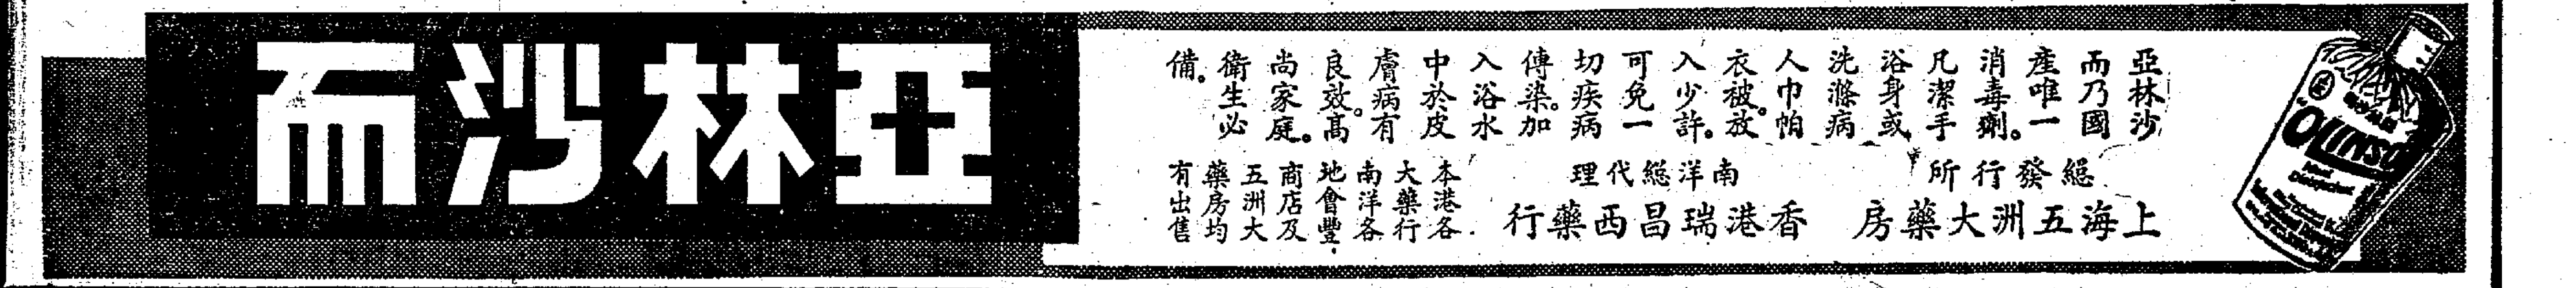 亞林沙而
亞林沙
而乃國
産唯一
消毒劑。
凡潔手
浴身或
洗滌病
人巾帕
衣被。放
入少許。
可免一
切疾病
傳染。加
入浴水
中於皮
膚病有
良效。高
尚家庭。
衛生必
備。
總發行所
上海五洲大藥房
南洋總代理
香港瑞昌西藥行
本港各
大藥行
南洋各
地會豐
商店及
五洲大
藥房均
有出售